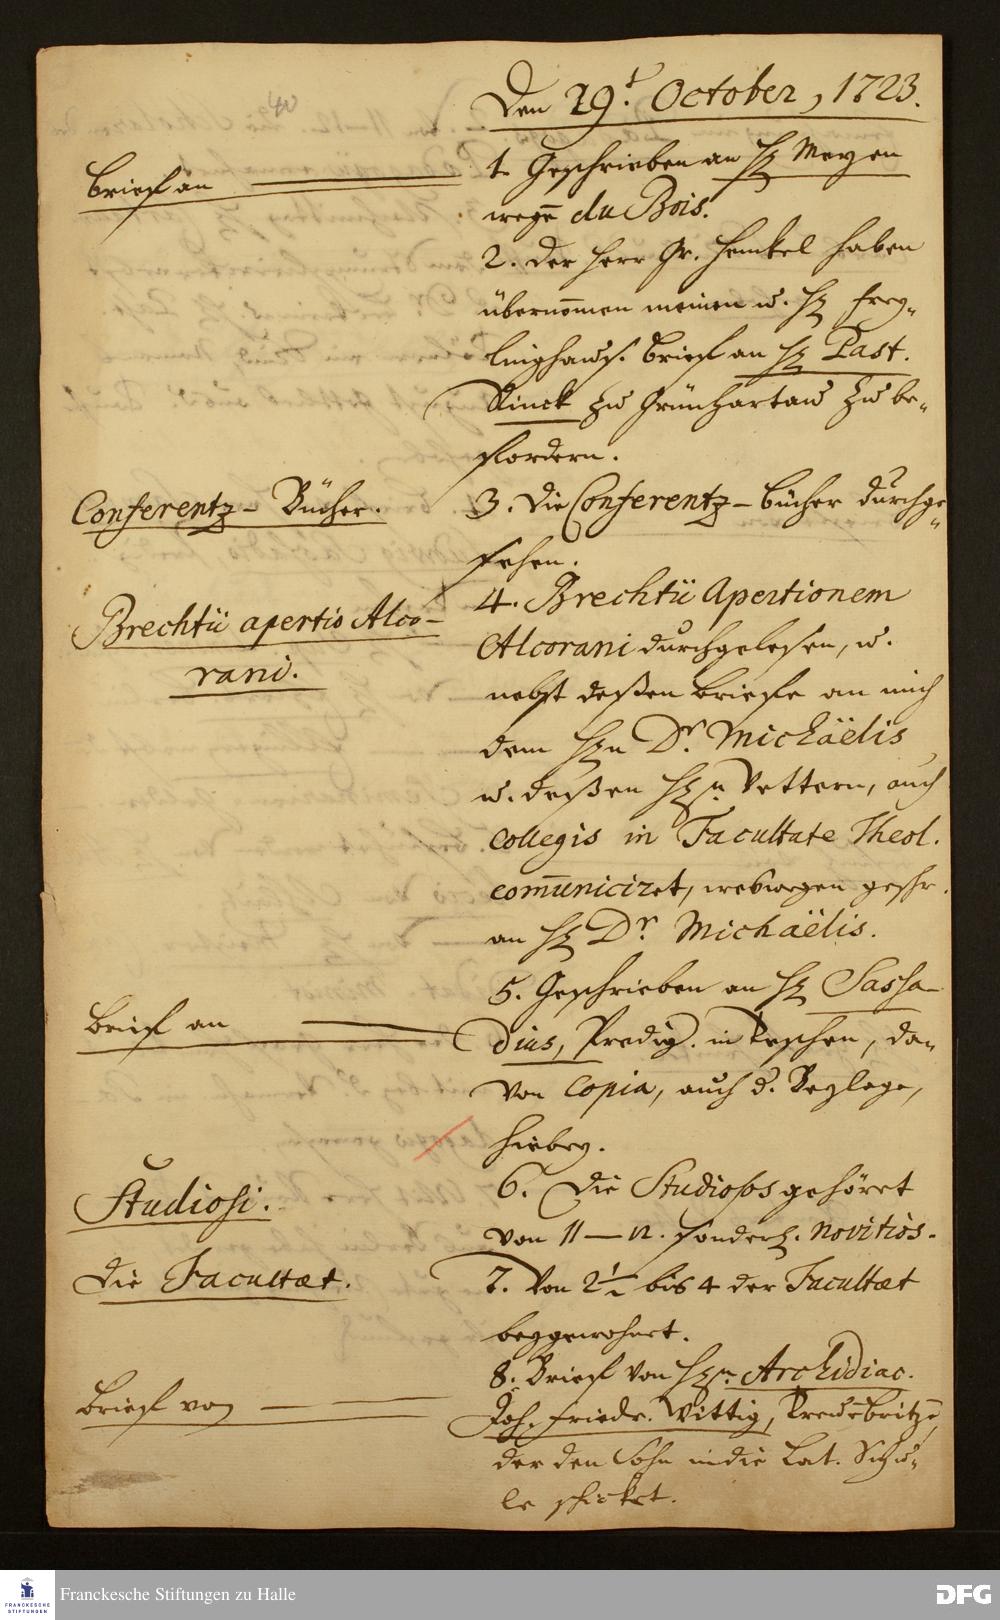 Den 29.t October, 1723.
Brief an
1. Geschrieben an H. Meyen
wegē du Bois.
2. der Herr Gr. Henkel haben
übernom̄en meinen u. H. Frey-
linghaus. Brief an H. Past.
Rinck zu Grünhartau zu be-
fordern.
Conferentz-Bücher.
3. Die Conferentz-bücher durchge-
sehen.
Brechtii apertio Alco-
rani.
4. Brechtii Apertionem
Alcorani durchgelesen, u.
nebst deßen briefe an mich
dem Hn Dr. Michäelis
u. deßen Hn. Vettern, auch
collegis in Facultate Theol.
com̄uniciret, weswegen geschr.
an H. Dr. Michaëlis.
Brief an
5. Geschrieben an H. Sassa-
dius, Predig. in Teschen, da-
von Copia, auch d. Beylage,
hiebey.
Studiosi.
6. Die Studiosos gehöret
von 11-12. sonderl. novitios.
die Facultæt.
7. Von 2½ bis 4 der Facultæt
beygewohnet.
Brief von
8. Brief von Hn. Archidiac.
Joh. Friedr. Wittig, Treuēbritzē,
der den Sohn in die Lat. Schu-
le schicket.
Franckesche Stiftungen zu Halle
FRANCKESCHE
STIFTUNGEN
DFG